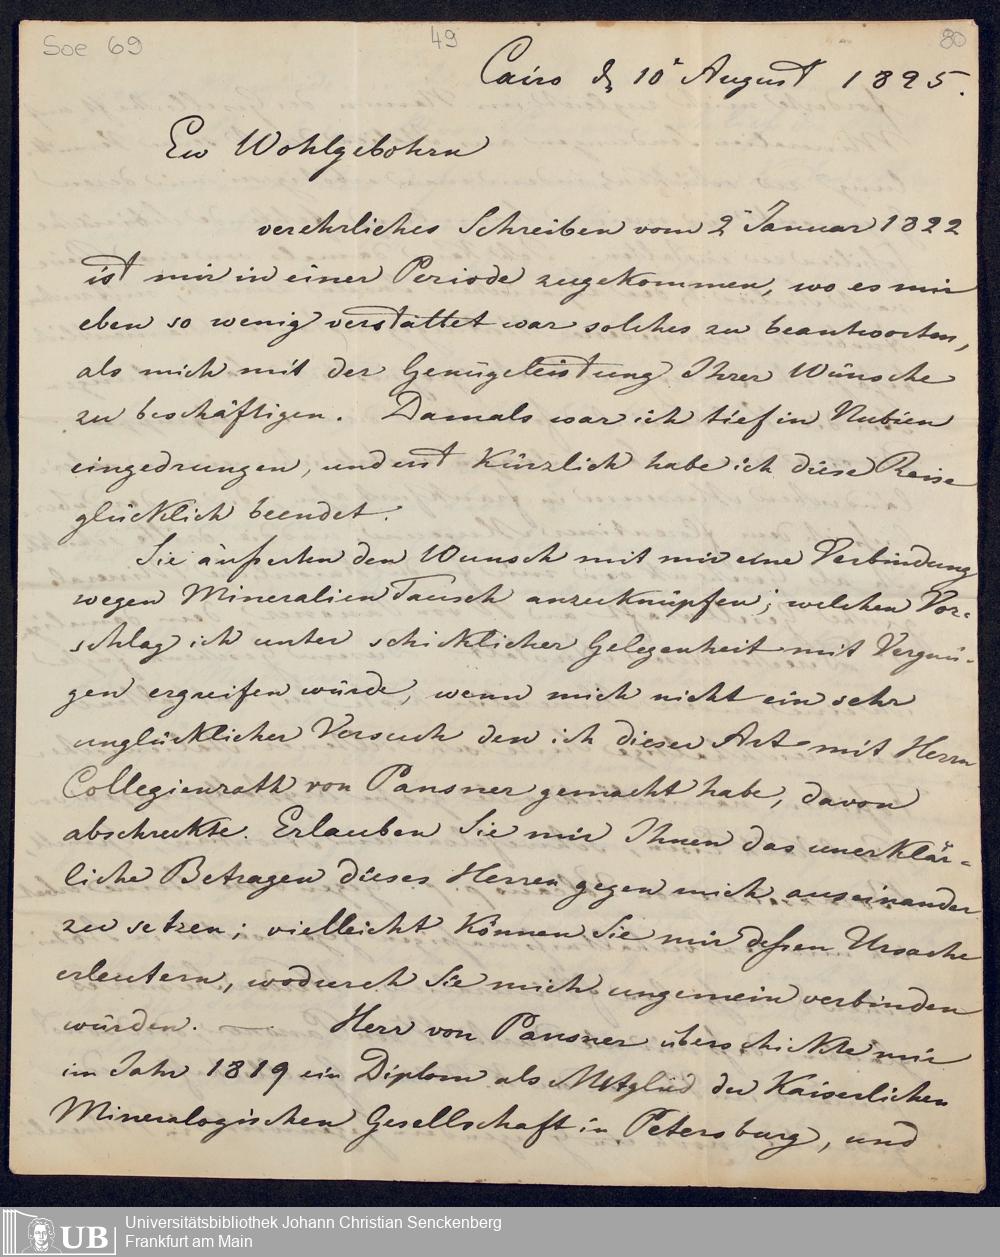 Soe 69 49 80
Cairo d 10 August 1825.
Ew Wohlgebohrn
verehrliches Schreiben vom 2 Januar 1822
ist mir in einer Periode zugekommen, wo es mir
eben so wenig verstattet war solches zu beantworten,
als mich mit der Genügeleistung Ihrer Wünsche
zu beschäftigen. Damals war ich tief in Nubien
eingedrungen, und erst kürzlich habe ich diese Reise
glücklich beendet.
Sie äuserten den Wunsch mit mir eine Verbindung
wegen Mineralien Tausch anzuknüpfen; welchen Vor-
schlag ich unter schicklicher Gelegenheit mit Vergnü-
gen ergreifen würde, wenn mich nicht ein sehr
unglücklicher Versuch den ich dieser Art mit Herrn
Collegienrath von Pansner gemacht habe, davon
abschreckte. Erlauben Sie mir Ihnen das unerklär-
liche Betragen dieses Herren gegen mich auseinander
zu setzen; vielleicht können Sie mir deßen Ursache
erleutern, wodurch Sie mich ungemein verbinden
würden. — Herr von Pansner überschickte mir
im Jahr 1819 ein Diplom als Mitglied der Kaiserlichen
Mineralogischen Gesellschaft in Petersburg, und
UB Universitätsbibliothek Johann Christian Senckenberg
Frankfurt am Main